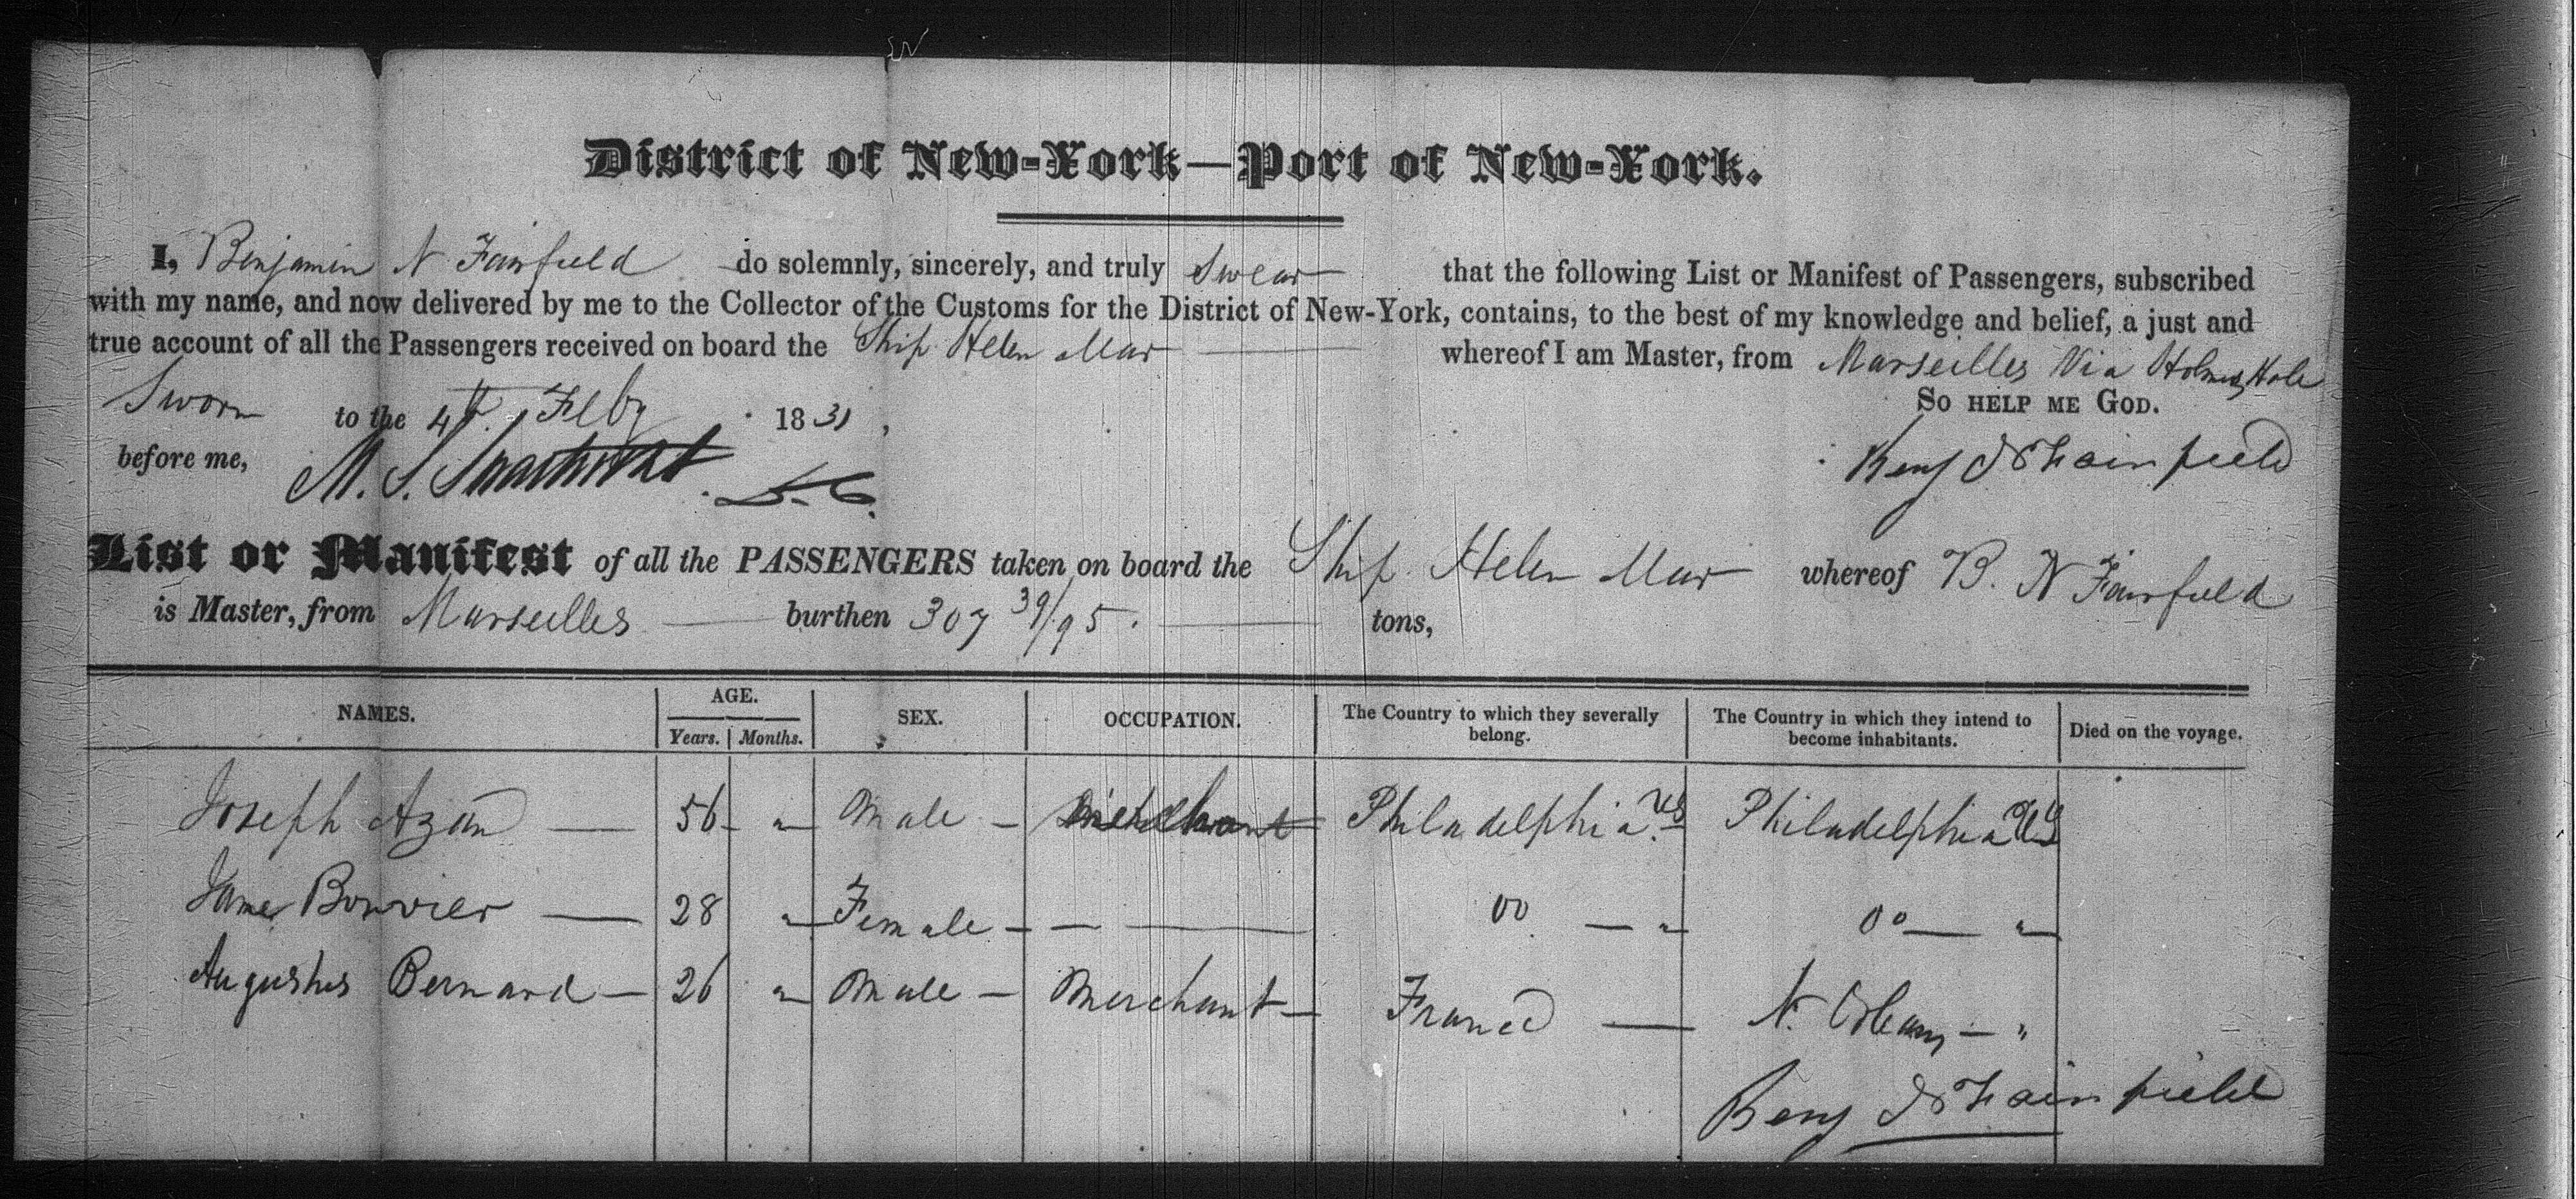 District of New-York—Port of New-York.
I, Benjamin N Fairfield do solemnly, sincerely, and truly Swear that the following List or Manifest of Passengers, subscribed
with my name, and now delivered by me to the Collector of the Customs for the District of New-York, contains, to the best of my knowledge and belief, a just and
true account of all the Passengers received on board the Ship Helen Mar whereof I am Master, from Marseilles Via Holmes Hole
Sworn to the 4th Feby 1831, So help me God.
before me, M. S. Swartwout D.C. Benj N Fairfield
List or Manifest of all the PASSENGERS taken on board the Ship Helen Mar whereof B. N Fairfield
is Master, from Marseilles burthen 307 39/95. tons,
NAMES. AGE. Years. Months. SEX. OCCUPATION. The Country to which they severally belong. The Country in which they intend to become inhabitants. Died on the voyage.
Joseph Azam — 56 " Male — Merchant Philadelphia US Philadelphia US
Jane Bouvier — 28 " Female — — do — " do — "
Augustus Bernard — 26 " Male — Merchant — France — N. Orleans — "
Benj N Fairfield